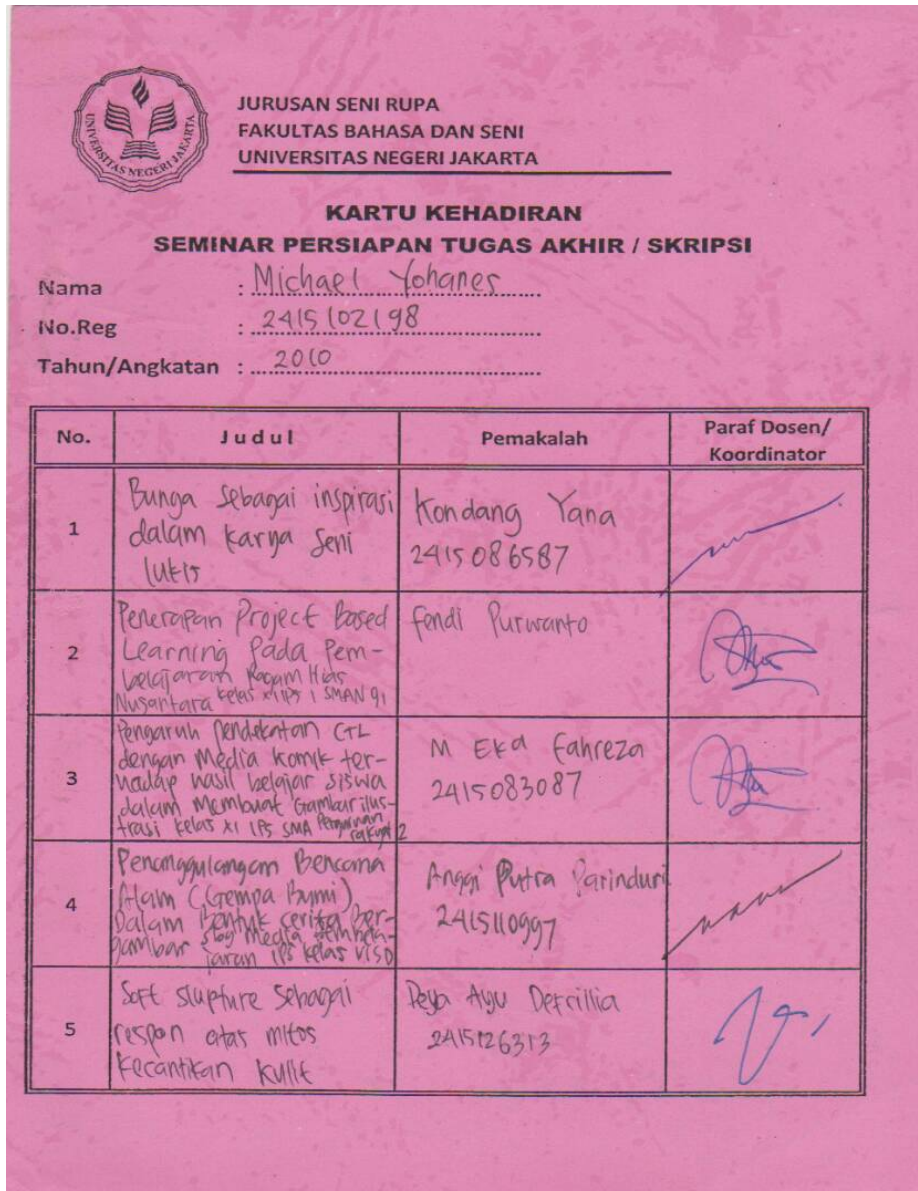 UNIVERSITAS NEGERI JAKARTA
JURUSAN SENI RUPA
FAKULTAS BAHASA DAN SENI
UNIVERSITAS NEGERI JAKARTA
KARTU KEHADIRAN
SEMINAR PERSIAPAN TUGAS AKHIR / SKRIPSI
Nama : Michael Yohanes
No.Reg : 2415102198
Tahun/Angkatan : 2010
No. Judul Pemakalah Paraf Dosen/
Koordinator
1
Bunga sebagai inspirasi
dalam karya seni
lukis
Kondang Yana
2415086587
2
Penerapan Project Based
Learning Pada Pem-
belajaran Ragam Hias
Nusantara kelas XI IPS 1 SMAN 91
Fendi Purwanto
3
Pengaruh pendekatan CTL
dengan Media Komik ter-
hadap hasil belajar siswa
dalam Membuat Gambar ilus-
trasi kelas XI IPS SMA Perguruan
rakyat 2
M Eka Fahreza
2415083087
4
Penanggulangan Bencana
Alam (Gempa Bumi)
Dalam Bentuk cerita Ber-
gambar sbg Media Pembela-
jaran IPS kelas VI SD
Anggi Putra Parinduri
2415110997
5
Soft slupture sebagai
respon atas mitos
kecantikan kulit
Ayu
2415126313